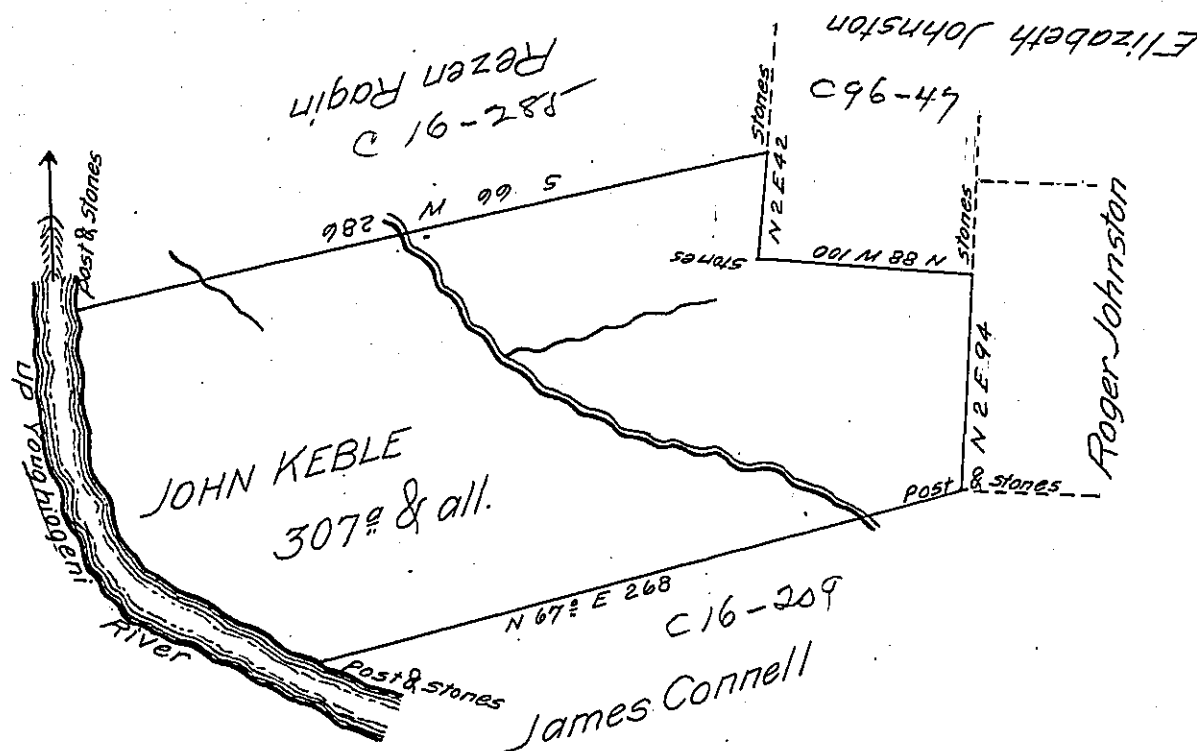 Elizabeth Johnston
C96-47
Rezen Ragin
C 16-287
Stones
N 2 E 42
S 66 W 286
Post & stones
Stones
N 88 W 100
Stones
N 2 E 94
Roger Johnston
up Youghiogeni
River
JOHN KEBLE
307a & all.
Post & stones
N 67° E 268
C16-209
Post & stones
James Connell